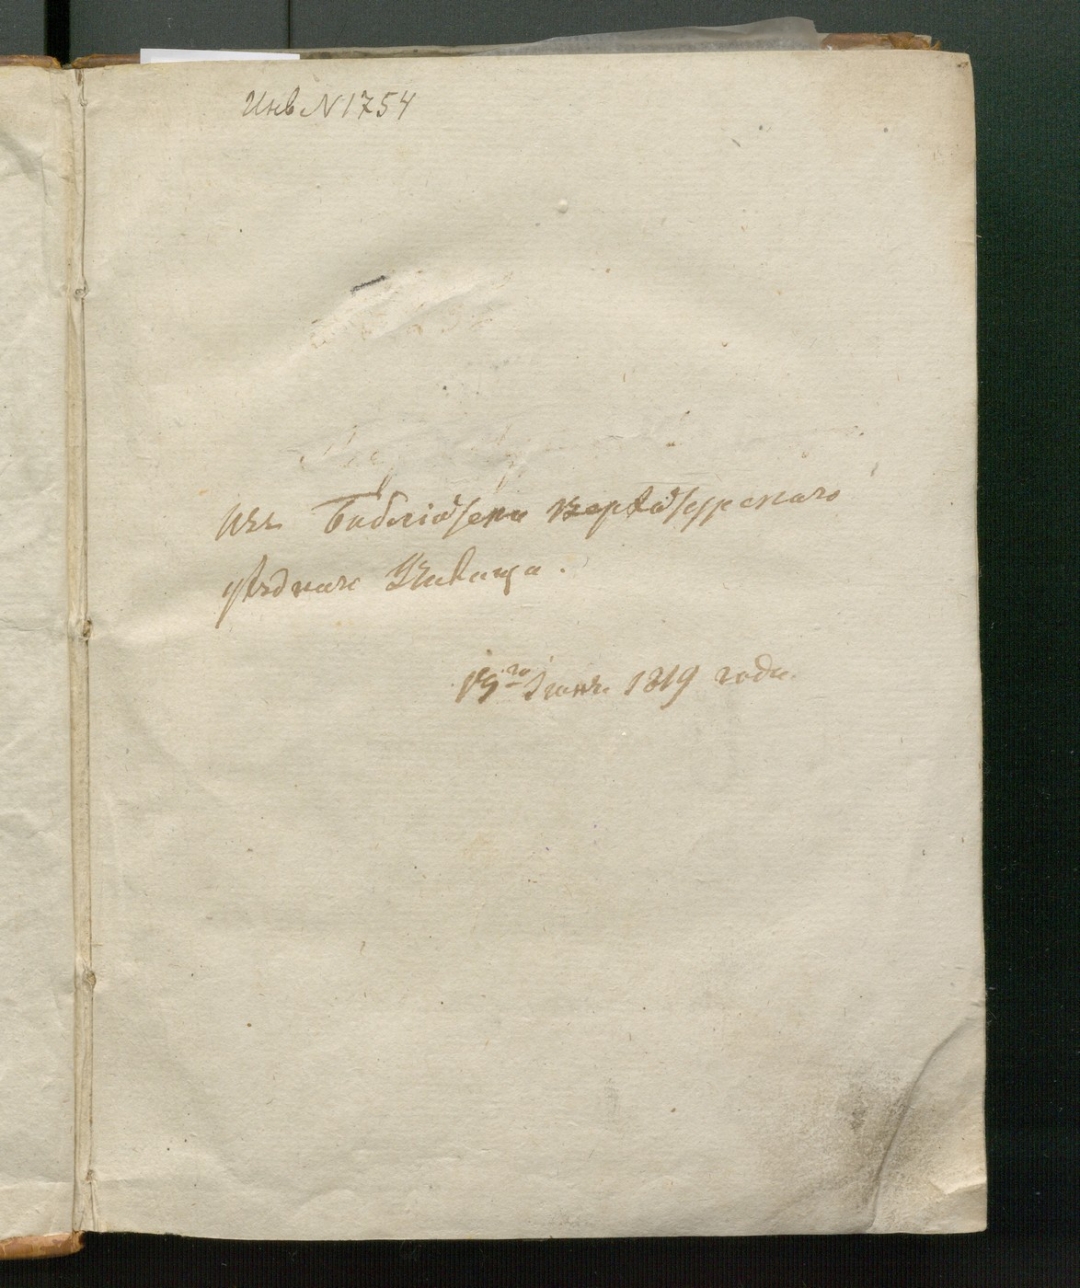 Инв N 1754
Изъ Библіотеки Верхотурскаго
уѣзднаго Училища.
19го Іюня 1819 года.